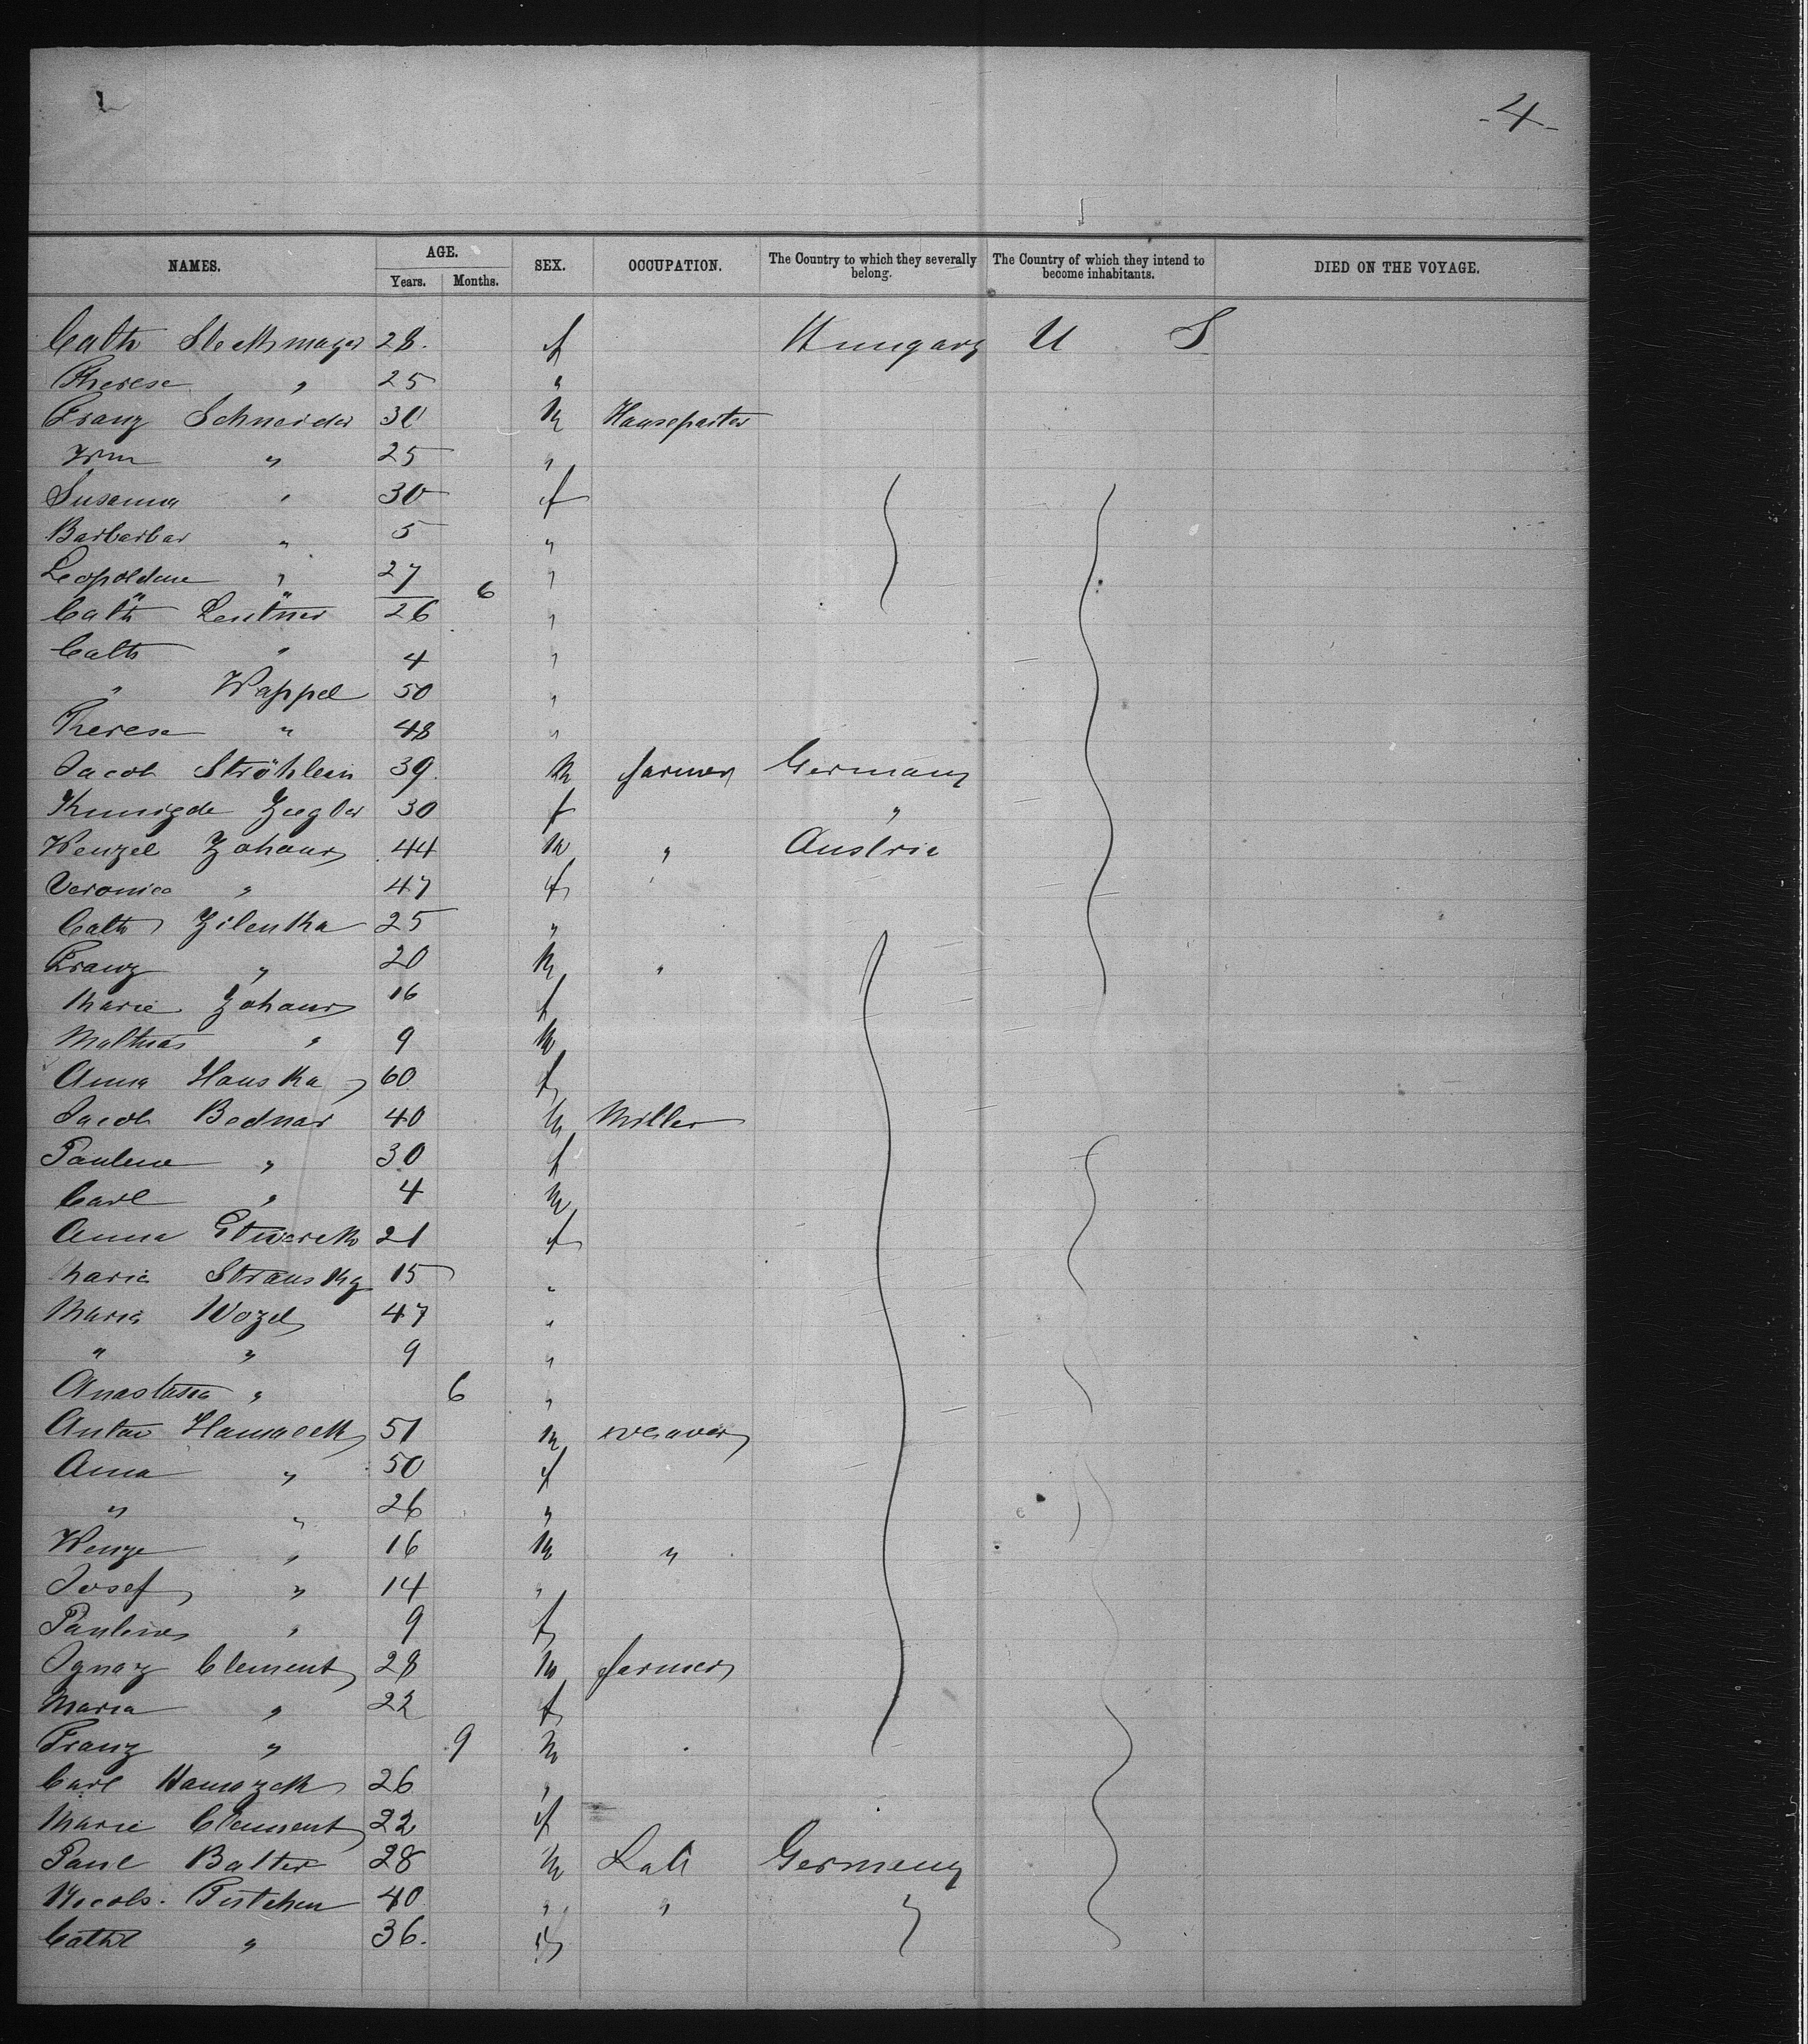 -4-
NAMES. AGE. SEX. OCCUPATION. The Country to which they severally belong. The Country of which they intend to become inhabitants. DIED ON THE VOYAGE.
Years. Months.
Cath 28. f Hungary U S
Therese " 25 "
Franz Schneider 30 M
Wm " 25 "
Susanna " 30 f
Barbarbar " 5 "
Leopoldine " 27 "
" " 6
Cath Leutner 26 "
Cath " 4 "
" Wappel 50 "
Therese " 48 "
Jacob Ströhlein 39. M farmer Germany
Kunigde Ziegler 30 f "
Wenzel Zahour 44 M " Austria
Veronica " 47 f
Cath Zilenka 25 "
Franz " 20 M "
Marie Zahour 16 f
Mathias " 9 M
Anna Houska 60 f
Jacob Bednar 40 M Miller
Pauline " 30 f
Carl " 4 M
Anna 21 f
Maria Stransky 15 "
Maria Wozel 47 "
" " 9 "
Anastasia " 6 "
Anton 51 M weaver
Anna " 50 f
" " 26 "
Wenze " 16 M "
Josef " 14 "
Pauline " 9 f
Ignaz Clement 28 M farmer
Maria " 22 f
Franz " 9 M
Carl 26 "
Marie Clement 22 f
Paul Balter 28 M Lab Germany
40 " "
Cath " 36. f